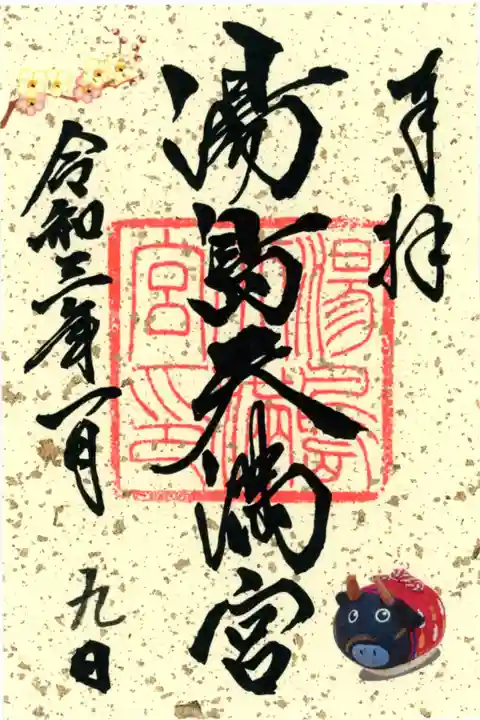 奉拝
湯島天満宮
令和三年一月
九日
湯島
天満
宮印